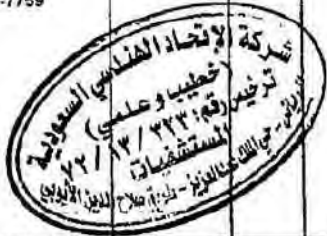 -7759
شركة الإتحاد الهندسي السعودية
(خطيب و علمي)
ترخيص رقم: ٣٢٣ / ١٣ / ٢٢
المستشفيات
الرياض - حي الملك عبدالعزيز - طريق صلاح الدين الأيوبي